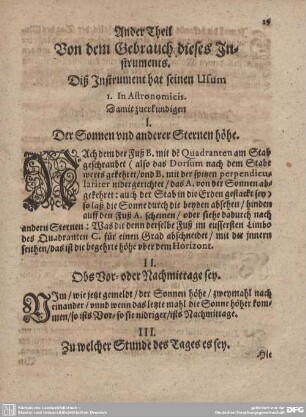 15
Ander Theil
Von dem Gebrauch dieses In-
struments.
Diß Instrument hat seinen Usum
1. In Astronomicis.
Damit zuerkundigen
I.
Der Sonnen vnd anderer Sternen höhe.
NAch dem der Fuß B. mit dē Quadranten am Stab
geschraubet / also das Dorsum nach dem Stabe
werts gekehret / vnd B. mit der spitzen perpendicu-
lariter nidergerichtet / das A. von der Sonnen ab-
gekehret: auch der Stab in die Erden gesteckt sey /
so laß die Sonne durch die beyden absehen / hinden
auff den Fuß A. scheinen / oder siehe dadurch nach
andern Sternen: Was dir denn derselbe Fuß im eussersten Limbo
des Quadranten C. für einen Grad abschneidet / mit der innern
seithen / das ist die begehrte höhe vber dem Horizont.
II.
Obs Vor- oder Nachmittage sey.
NIm / wie jetzt gemeldt / der Sonnen höhe / zweymahl nach
einander / vnnd wenn das letzte mahl die Sonne höher kom-
men / so ists Vor- so sie nidriger / ists Nachmittage.
III.
Zu welcher Stunde des Tages es sey.
Hie
Sächsische Landesbibliothek -
Staats- und Universitätsbibliothek Dresden
gefördert von der
Deutschen Forschungsgemeinschaft
DFG